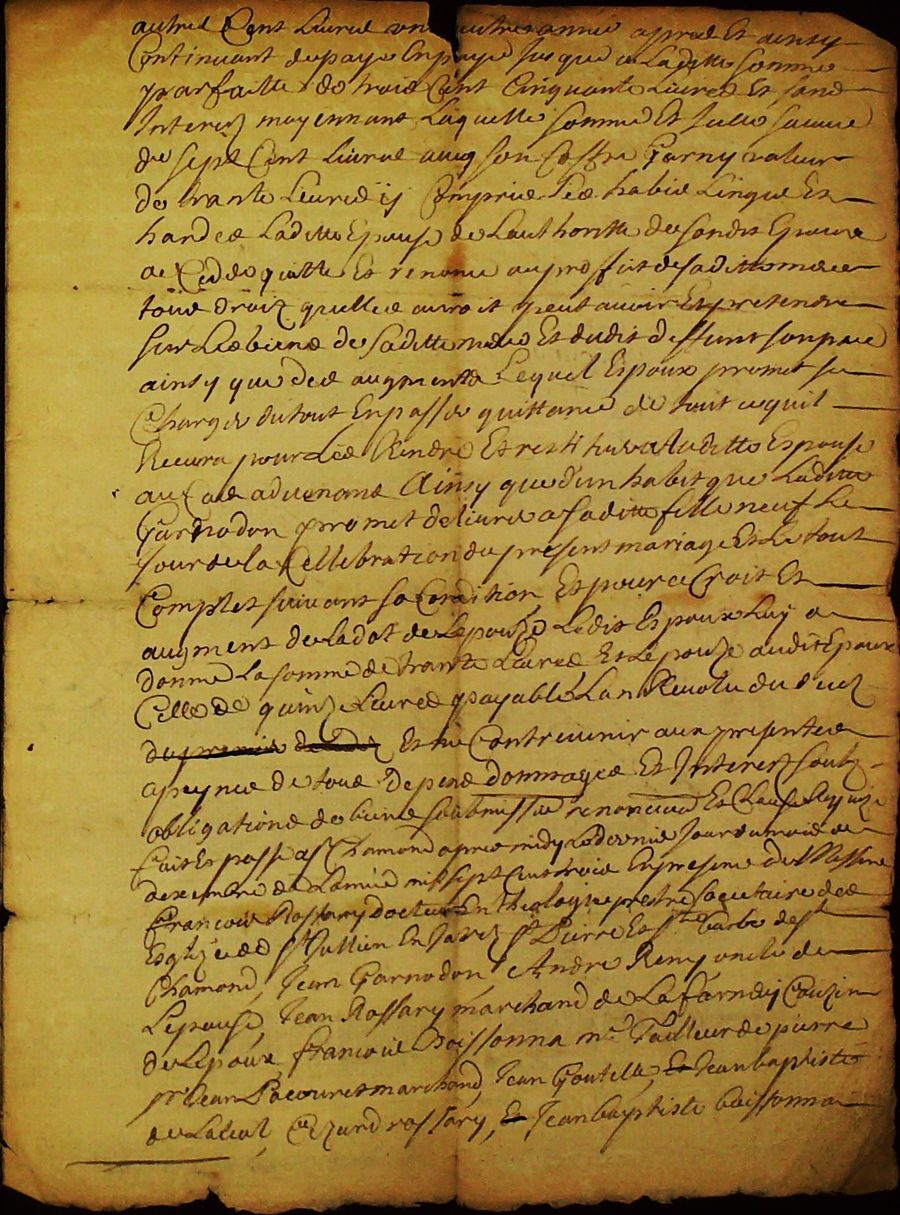 autres Cent Livres une autre année apres Et ainsy
Continuant de paye En paye Jusques a Laditte somme
parfaitte de trois Cent Cinquante Livres Et sans
Interez moyennant Laquelle somme Et Icelle
de sept Cent Livres avuq son Coffre Garny valeur
de trante Livres ij Compris ses habis Linges Et
hardes Laditte Epouse de Lauthoritte de sondit Epoux
a Cedde quitte Et renonce au proffit de saditte mere
tous droiz quelle auroit peut avoir Et pretendre
sur Les biens de saditte mere Et dudit deffunt son pere
ainsy que des augments Lequel Espoux promet se
Charger du tout En passer quittance de tout ce quil
Recevra pour Les Rendre Et restituer a Laditte Espouse
au Cas advenant Ainsy que d'un habit que Laditte
Garnodon promet delivrer a saditte fille neuf Le
Jour de la Cellebration du present mariage Et Le tout
Complet suivant sa Condition Et pour a Croit Et
augment de La dot de Lepouze Ledit Espoux Luy a
donné La somme de trante Livres Et Lepouze audit Epoux
Celle de quinze Livres payable Lan Revolu du decez
du premier decedez Et ne Contrevenir aux presentes
a peyne de tous depens dommages Et Interez soubz
obligations de biens soubmissions renonciaons Et Clauses
fait Et passé a St Chamond apres midy Le dernier Jour du mois de
dexembre de Lannée mil sept Cent trois En presence de Messire
François Rossary docteur En Theologie prestre socettaire des
Esglizes St Jullien En Jarez St Pierre Et Ste Barbe de St
Chamond, Jean Garnodon, André Remy oncles de
Lepouse, Jean Rossary marchand de La Couzin
de Lepoux françois Boissonna me Tailleur de pierre
Jean marchand, Jean Goutelle, Et Jean baptiste
rossary, Et Jean baptiste boissonna